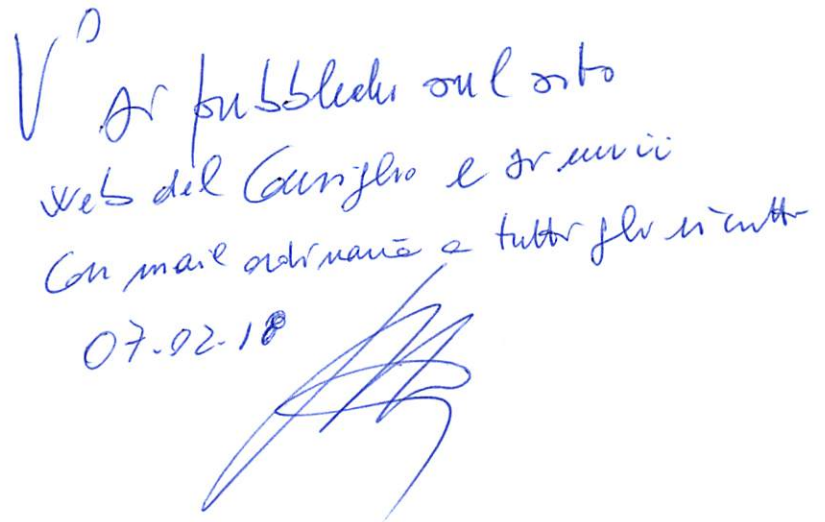 V°
Si pubblichi sul sito
web del Consiglio e si invii
con mail ordinaria a tutti gli iscritti
07.02.18